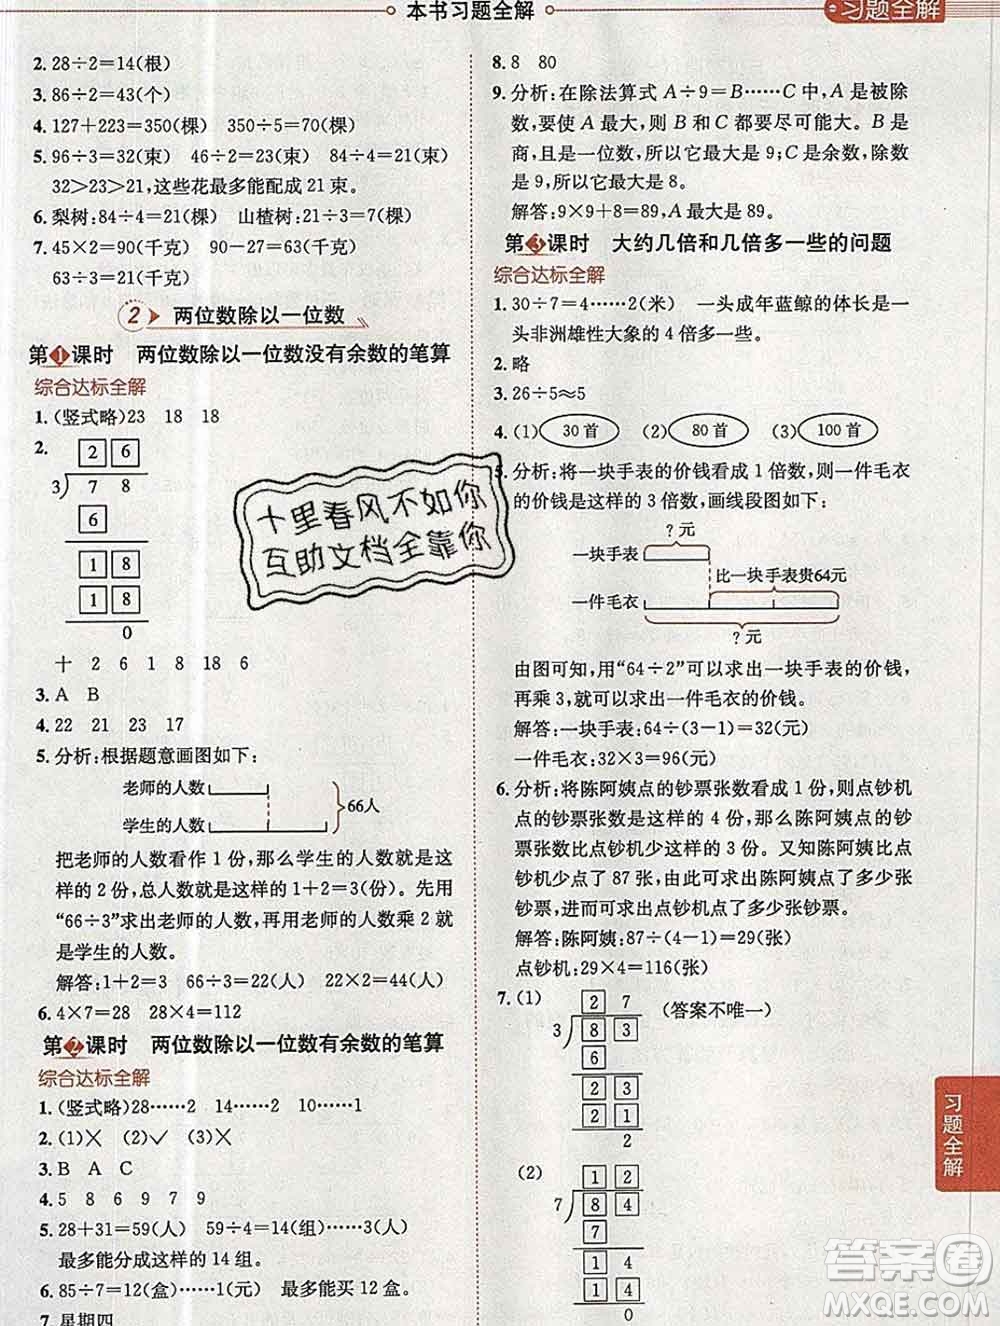 本书习题全解
习题全解
2. 28÷2=14(根)
3. 86÷2=43(个)
4. 127+223=350(棵) 350÷5=70(棵)
5. 96÷3=32(束) 46÷2=23(束) 84÷4=21(束)
32>23>21,这些花最多能配成 21 束。
6. 梨树:84÷4=21(棵) 山楂树:21÷3=7(棵)
7. 45×2=90(千克) 90-27=63(千克)
63÷3=21(千克)
2 两位数除以一位数
第1课时 两位数除以一位数没有余数的笔算
综合达标全解
1.(竖式略)23 18 18
2.
2 6
3 7 8
6
1 8
1 8
0
十 2 6 1 8 18 6
3. A B
4. 22 21 23 17
5. 分析:根据题意画图如下:
老师的人数
66人
学生的人数
把老师的人数看作 1 份,那么学生的人数就是这
样的 2 份,总人数就是这样的 1+2=3(份)。先用
“66÷3”求出老师的人数,再用老师的人数乘 2 就
是学生的人数。
解答:1+2=3 66÷3=22(人) 22×2=44(人)
6. 4×7=28 28×4=112
第2课时 两位数除以一位数有余数的笔算
综合达标全解
1.(竖式略)28……2 14……2 10……1
2.(1)× (2)√ (3)×
3. B A C
4. 5 8 6 9 7 9
5. 28+31=59(人) 59÷4=14(组)……3(人)
最多能分成这样的 14 组。
6. 85÷7=12(盒)……1(元) 最多能买 12 盒。
7. 星期四
8. 8 80
9. 分析:在除法算式 A÷9=B……C 中,A 是被除
数,要使 A 最大,则 B 和 C 都要尽可能大。B 是
商,且是一位数,所以它最大是 9;C 是余数,除数
是 9,所以它最大是 8。
解答:9×9+8=89,A 最大是 89。
第3课时 大约几倍和几倍多一些的问题
综合达标全解
1. 30÷7=4……2(米) 一头成年蓝鲸的体长是一
头非洲雄性大象的 4 倍多一些。
2. 略
3. 26÷5≈5
4. (1) 30 首 (2) 80 首 (3) 100 首
5. 分析:将一块手表的价钱看成 1 倍数,则一件毛衣
的价钱是这样的 3 倍数,画线段图如下:
? 元
一块手表
比一块手表贵64元
一件毛衣
? 元
由图可知,用“64÷2”可以求出一块手表的价钱,
再乘 3,就可以求出一件毛衣的价钱。
解答:一块手表:64÷(3-1)=32(元)
一件毛衣:32×3=96(元)
6. 分析:将陈阿姨点的钞票张数看成 1 份,则点钞机
点的钞票张数是这样的 4 份,那么陈阿姨点的钞
票张数比点钞机少这样的 3 份。又知陈阿姨比点
钞机少点了 87 张,由此可求出陈阿姨点了多少张
钞票,进而可求出点钞机点了多少张钞票。
解答:陈阿姨:87÷(4-1)=29(张)
点钞机:29×4=116(张)
7. (1)
2 7 (答案不唯一)
3 8 3
6
2 3
2 1
2
(2)
1 2
7 8 4
7
1 4
1 4
0
习题全解
十里春风不如你
互助文档全靠你
答案圈
MXQE.COM